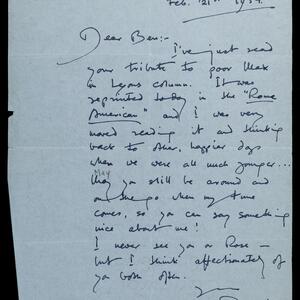 Feb. 21st 1954.
Dear Ben:-
I've just read
your tribute to poor Max
in Lyons column. It was
reprinted today in the "Rome
American" and I was very
moved reading it and thinking
back to other, happier days
when we were all much younger...
May
you still be around and
on the go when my time
comes, so you can say something
nice about me!
I never see you or Rose -
but I think affectionately of
you both often.